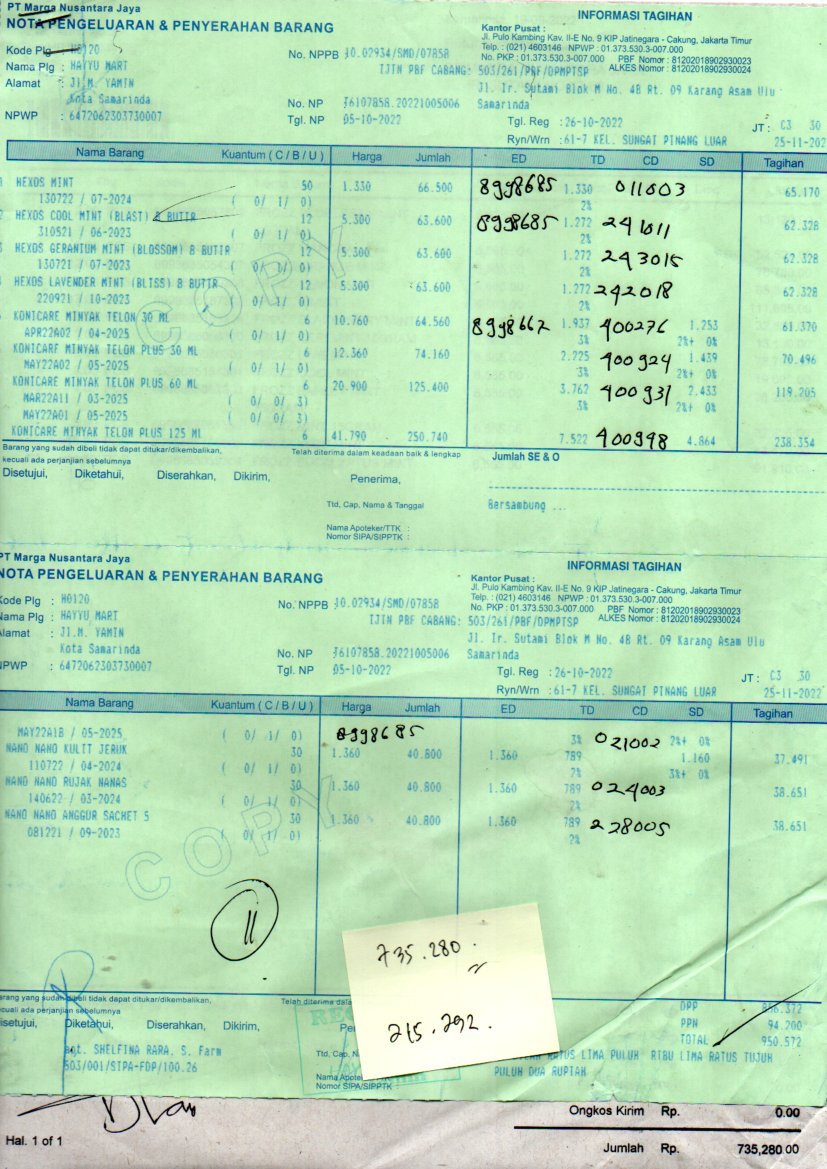 PT Marga Nusantara Jaya
NOTA PENGELUARAN & PENYERAHAN BARANG
INFORMASI TAGIHAN
Kantor Pusat :
Jl. Pulo Kambing Kav. II-E No. 9 KIP Jatinegara - Cakung, Jakarta Timur
Telp. : (021) 4603146 NPWP : 01.373.530.3-007.000
No. PKP : 01.373.530.3-007.000 PBF Nomor : 81202018902930023
ALKES Nomor : 81202018902930024
Kode Plg : H0120
No. NPPB : 10.02934/SMD/07858
Nama Plg : HAYYU MART
IJIN PBF CABANG: 503/261/PBF/DPMPTSP
Alamat : Jl.M. YAMIN
Jl. Ir. Sutami Blok M No. 4B Rt. 09 Karang Asam Ulu
Kota Samarinda
No. NP : J6107858.20221005006
Samarinda
NPWP : 6472062303730007
Tgl. NP : 05-10-2022
Tgl. Reg : 26-10-2022
JT : C3 30
Ryn/Wrn : 61-7 KEL. SUNGAI PINANG LUAR
25-11-202
Nama Barang Kuantum ( C / B / U ) Harga Jumlah ED TD CD SD Tagihan
HEXOS MINT 50 1.330 66.500 8998685 1.330 011003 65.170
130722 / 07-2024 ( 0/ 1/ 0) 2%
HEXOS COOL MINT (BLAST) 8 BUTIR 12 5.300 63.600 8998685 1.272 241011 62.328
310521 / 06-2023 ( 0/ 1/ 0) 2%
HEXOS GERANIUM MINT (BLOSSOM) 8 BUTIR 12 5.300 63.600 1.272 243015 62.328
130721 / 07-2023 ( 0/ 1/ 0) 2%
HEXOS LAVENDER MINT (BLISS) 8 BUTIR 12 5.300 63.600 1.272 242018 62.328
220921 / 10-2023 ( 0/ 1/ 0) 2%
KONICARE MINYAK TELON 30 ML 6 10.760 64.560 8998667 1.937 400276 1.253 61.370
APR22A02 / 04-2025 ( 0/ 1/ 0) 3% 2%+ 0%
KONICARE MINYAK TELON PLUS 30 ML 6 12.360 74.160 2.225 400924 1.439 70.496
MAY22A02 / 05-2025 ( 0/ 1/ 0) 3% 2%+ 0%
KONICARE MINYAK TELON PLUS 60 ML 6 20.900 125.400 3.762 400931 2.433 119.205
MAR22A11 / 03-2025 ( 0/ 0/ 3) 3% 2%+ 0%
MAY22A01 / 05-2025 ( 0/ 0/ 3)
KONICARE MINYAK TELON PLUS 125 ML 6 41.790 250.740 7.522 400948 4.864 238.354
COPY
Barang yang sudah dibeli tidak dapat ditukar/dikembalikan,
kecuali ada perjanjian sebelumnya
Telah diterima dalam keadaan baik & lengkap
Jumlah SE & O
Disetujui, Diketahui, Diserahkan, Dikirim, Penerima,
Ttd, Cap, Nama & Tanggal
Bersambung ...
Nama Apoteker/TTK :
Nomor SIPA/SIPPTK :
PT Marga Nusantara Jaya
NOTA PENGELUARAN & PENYERAHAN BARANG
INFORMASI TAGIHAN
Kantor Pusat :
Jl. Pulo Kambing Kav. II-E No. 9 KIP Jatinegara - Cakung, Jakarta Timur
Telp. : (021) 4603146 NPWP : 01.373.530.3-007.000
No. PKP : 01.373.530.3-007.000 PBF Nomor : 81202018902930023
ALKES Nomor : 81202018902930024
Kode Plg : H0120
No. NPPB : 10.02934/SMD/07858
Nama Plg : HAYYU MART
IJIN PBF CABANG: 503/261/PBF/DPMPTSP
Alamat : Jl.M. YAMIN
Jl. Ir. Sutami Blok M No. 4B Rt. 09 Karang Asam Ulu
Kota Samarinda
No. NP : J6107858.20221005006
Samarinda
NPWP : 6472062303730007
Tgl. NP : 05-10-2022
Tgl. Reg : 26-10-2022
JT : C3 30
Ryn/Wrn : 61-7 KEL. SUNGAI PINANG LUAR
25-11-2022
Nama Barang Kuantum ( C / B / U ) Harga Jumlah ED TD CD SD Tagihan
MAY22A1B / 05-2025 ( 0/ 1/ 0) 8998685 3% 2%+ 0%
NANO NANO KULIT JERUK 30 1.360 40.800 1.360 789 021002 1.160 37.491
110722 / 04-2024 ( 0/ 1/ 0) 2% 3%+ 0%
NANO NANO RUJAK NANAS 30 1.360 40.800 1.360 789 024003 38.651
140622 / 03-2024 ( 0/ 1/ 0) 2%
NANO NANO ANGGUR SACHET 5 30 1.360 40.800 1.360 789 228005 38.651
081221 / 09-2023 ( 0/ 1/ 0) 2%
COPY
11
735.280.
215.292.
arang yang sudah dibeli tidak dapat ditukar/dikembalikan,
ecuali ada perjanjian sebelumnya
Telah diterima dala
DPP 856.372
PPN 94.200
TOTAL 950.572
isetujui, Diketahui, Diserahkan, Dikirim,
apt. SHELFINA RARA. S. Farm
503/001/SIPA-FDP/100.26
Ttd, Cap, N
RATUS LIMA PULUH RIBU LIMA RATUS TUJUH
PULUH DUA RUPIAH
Nama Apoteke
Nomor SIPA/SIPPTK :
Ongkos Kirim Rp. 0.00
Hal. 1 of 1
Jumlah Rp. 735,280.00